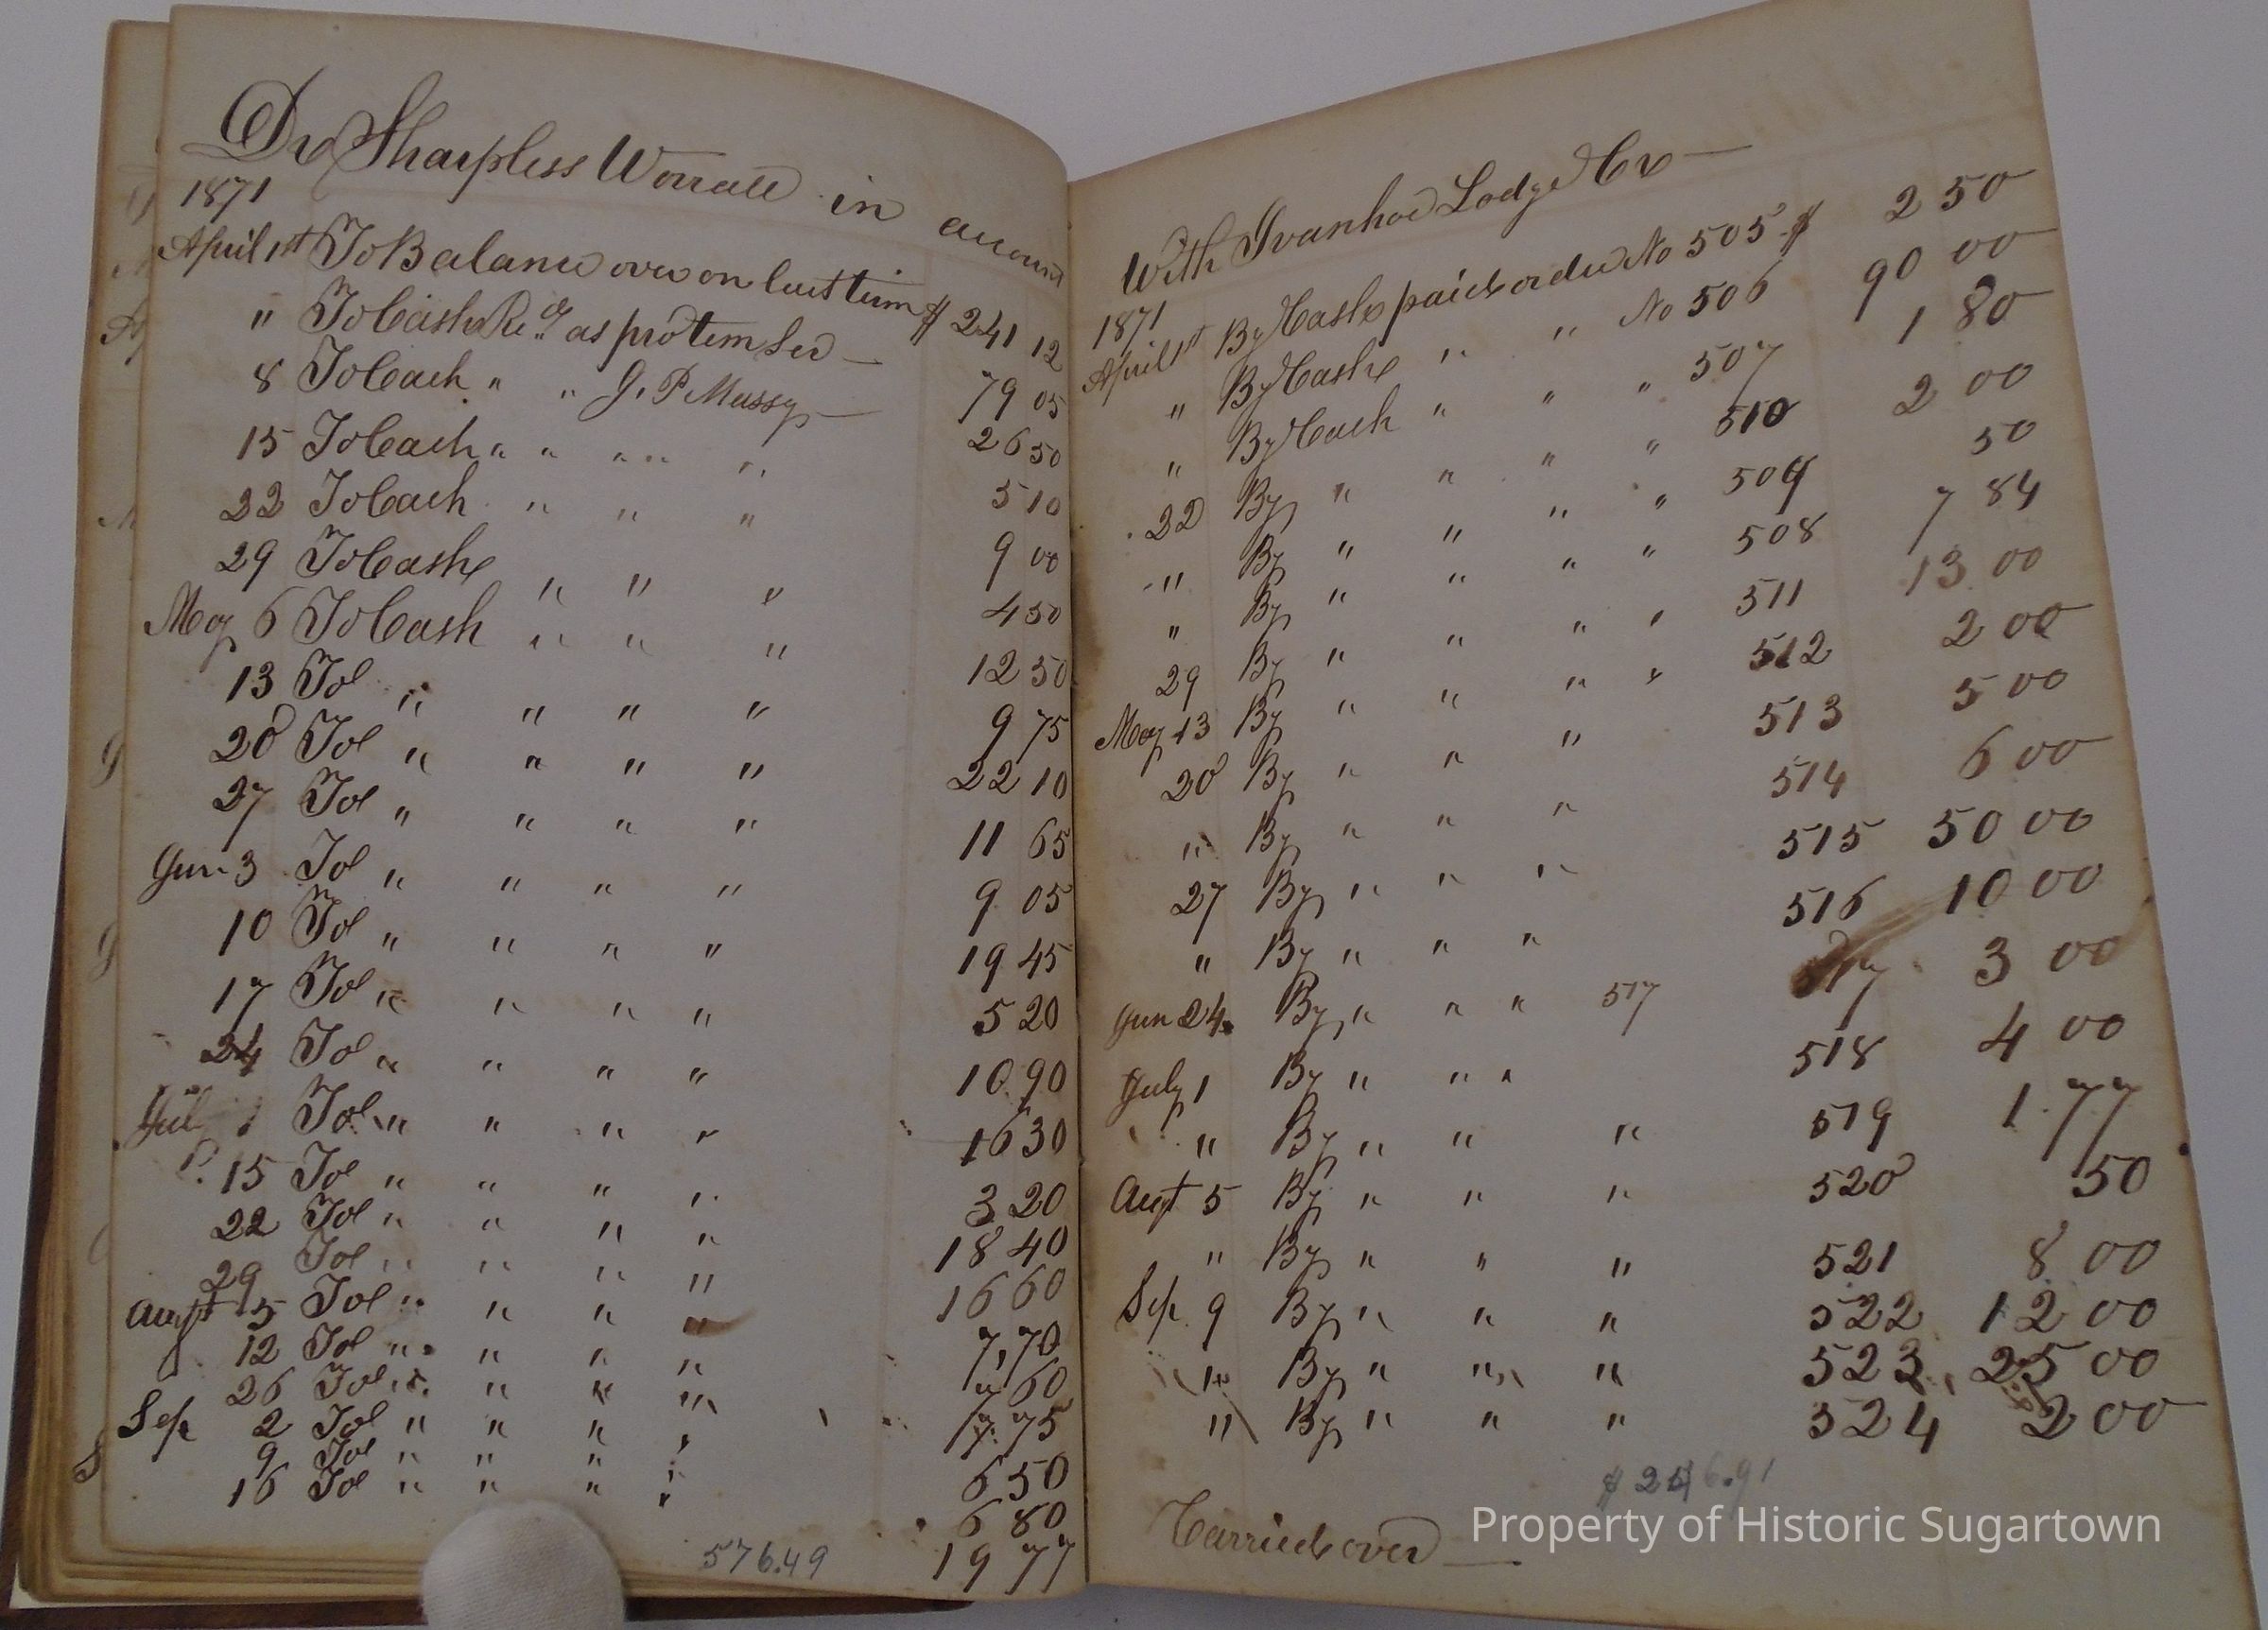 Dr Sharpless Worrall in account
1871
April 1st To Balance over on last term $ 241 12
" To Cash Recd. as protem Sec 79 05
8 To Cash " " J. P. Massey 26 50
15 To Cash " " " " " 5 10
22 To Cash " " " 9 00
29 To Cash " " " 4 50
May 6 To Cash " " " 12 50
13 To " " " " 9 75
20 To " " " " 22 10
27 To " " " " 11 65
Jun 3 To " " " " 9 05
10 To " " " " 19 45
17 To " " " " 5 20
24 To " " " " 10 90
July 1 To " " " " 16 30
15 To " " " " 3 20
22 To " " " " 18 40
29 To " " " " 16 60
Augt 5 To " " " " 7,70
12 To " " " " 7 60
26 To " " " " 7 75
Sep 2 To " " " " 6 50
9 To " " " " 6 80
16 To " " " " 19 77
576.49
With Ivanhoe Lodge Cr
1871
April 1st By Cash paid order No 505 $ 2 50
" By Cash " " No 506 90 00
" By Cash " " " 507 1 80
22 By " " " " 510 2 00
" By " " " " 509 50
" By " " " " 508 7 84
29 By " " " " 511 13 00
May 13 By " " " " 512 2 00
20 By " " " 513 5 00
" By " " " 514 6 00
27 By " " " 515 50 00
" By " " " 516 10 00
Jun 24 By " " " 517 517 3 00
July 1 By " " " 518 4 00
" By " " " 519 1.77
Augt 5 By " " " 520 50
" By " " " 521 8 00
Sep. 9 By " " " 522 12 00
" By " " " 523 25 00
" By " " " 524 2 00
$ 246.91
Carried over
Property of Historic Sugartown